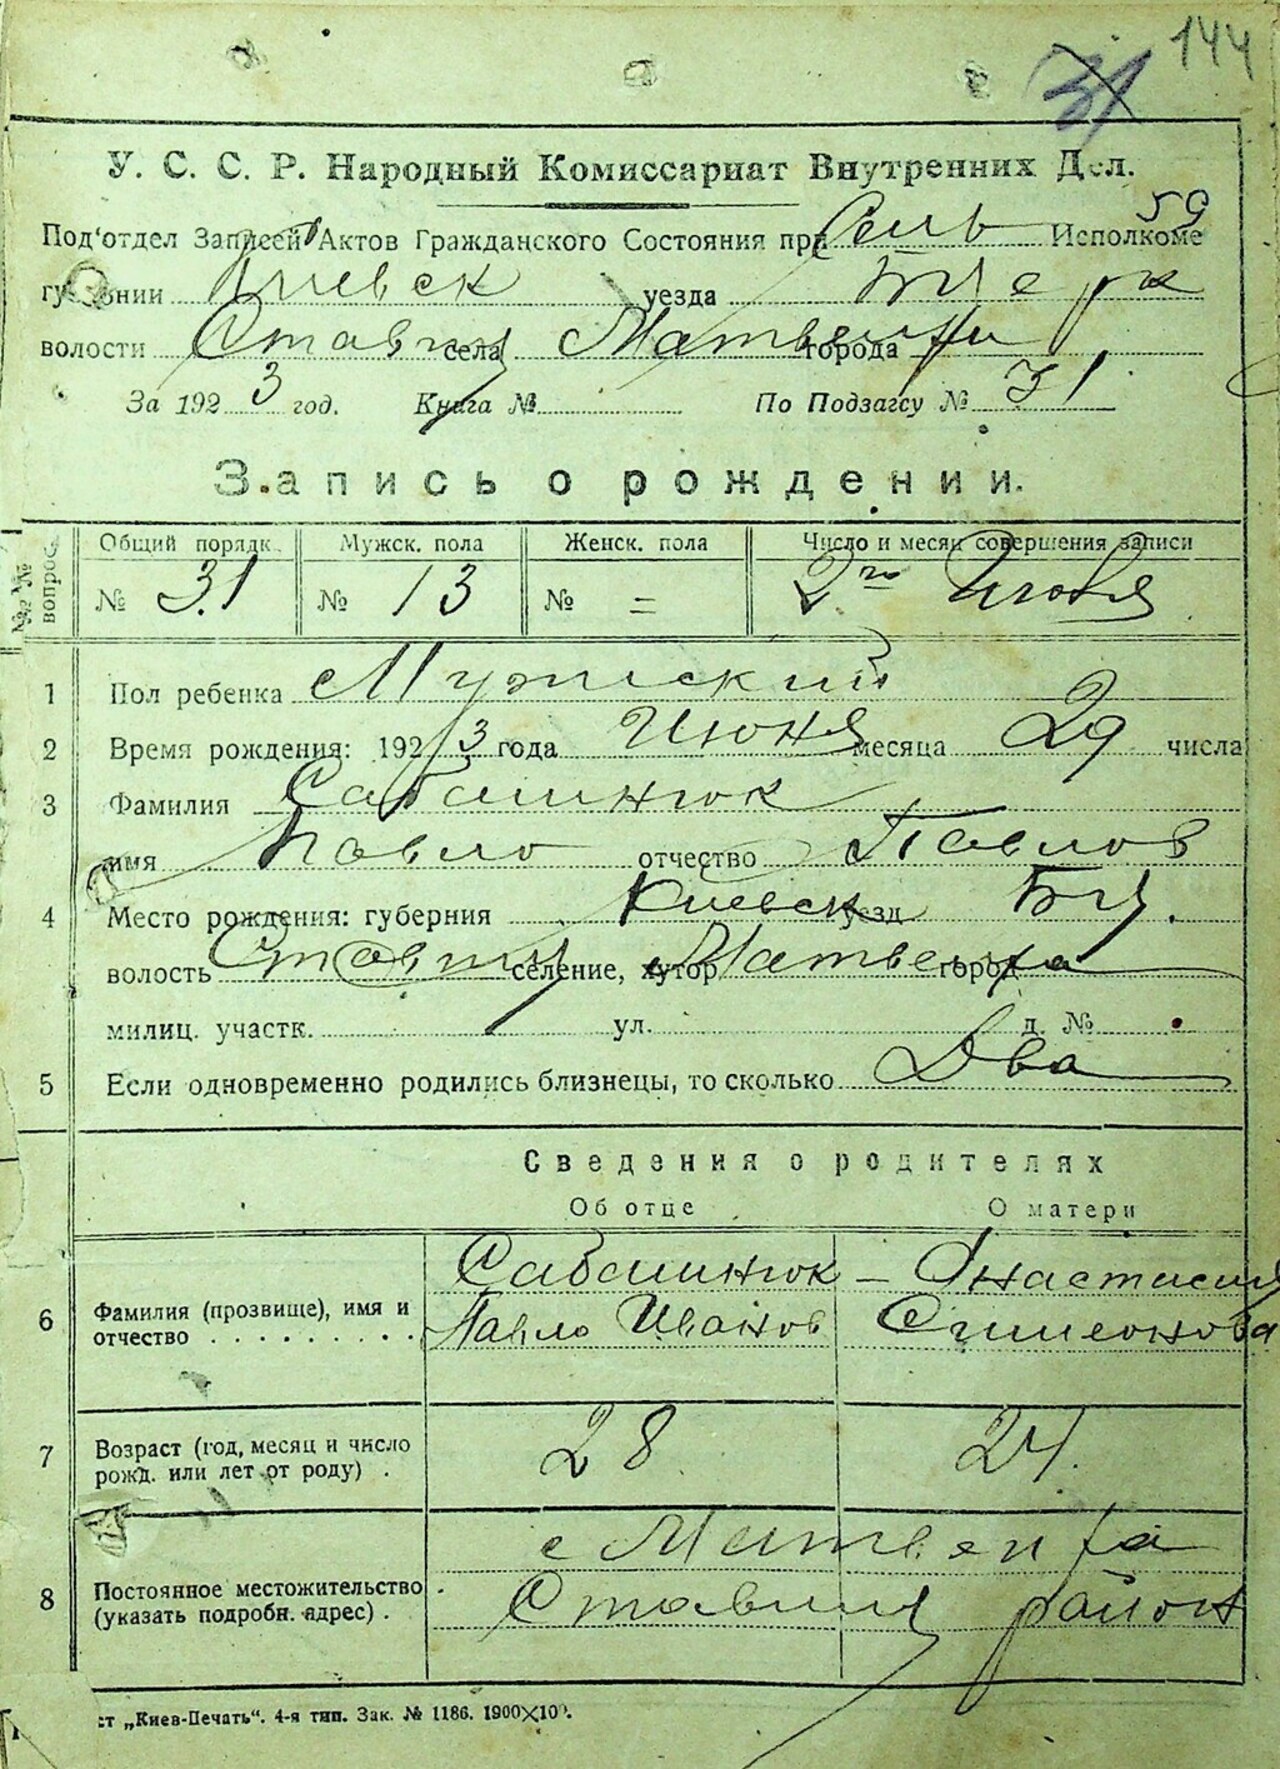 144
31
У. С. С. Р. Народный Комиссариат Внутренних Дел.
59
Под'отдел Записей Актов Гражданского Состояния при Сель Исполкоме
губернии Киевск уезда Бцерк
волости Ставищ села Матвеихи города
За 1923 год. Книга № По Подзагсу № 31
Запись о рождении.
№№ вопрос. Общий порядк. Мужск. пола Женск. пола Число и месяц совершения записи
№ 31 № 13 № = 2го Июля
1 Пол ребенка Мужский
2 Время рождения: 1923 года Июня месяца 29 числа
3 Фамилия Сабашнюк
имя Павло отчество Павлов
4 Место рождения: губерния Киевск уезд БЦ.
волость Ставищ селение, хутор Матвеиха город
милиц. участк. ул. д. №
5 Если одновременно родились близнецы, то сколько Два
Сведения о родителях
Об отце О матери
6 Фамилия (прозвище), имя и отчество Сабашнюк Павло Иванов – Анастасия Симеонова
7 Возраст (год, месяц и число рожд. или лет от роду) . 28 24.
8 Постоянное местожительство (указать подробн. адрес) . с Матвеиха Ставищ район
ст „Киев-Печать“. 4-я тип. Зак. № 1186. 1900×100.